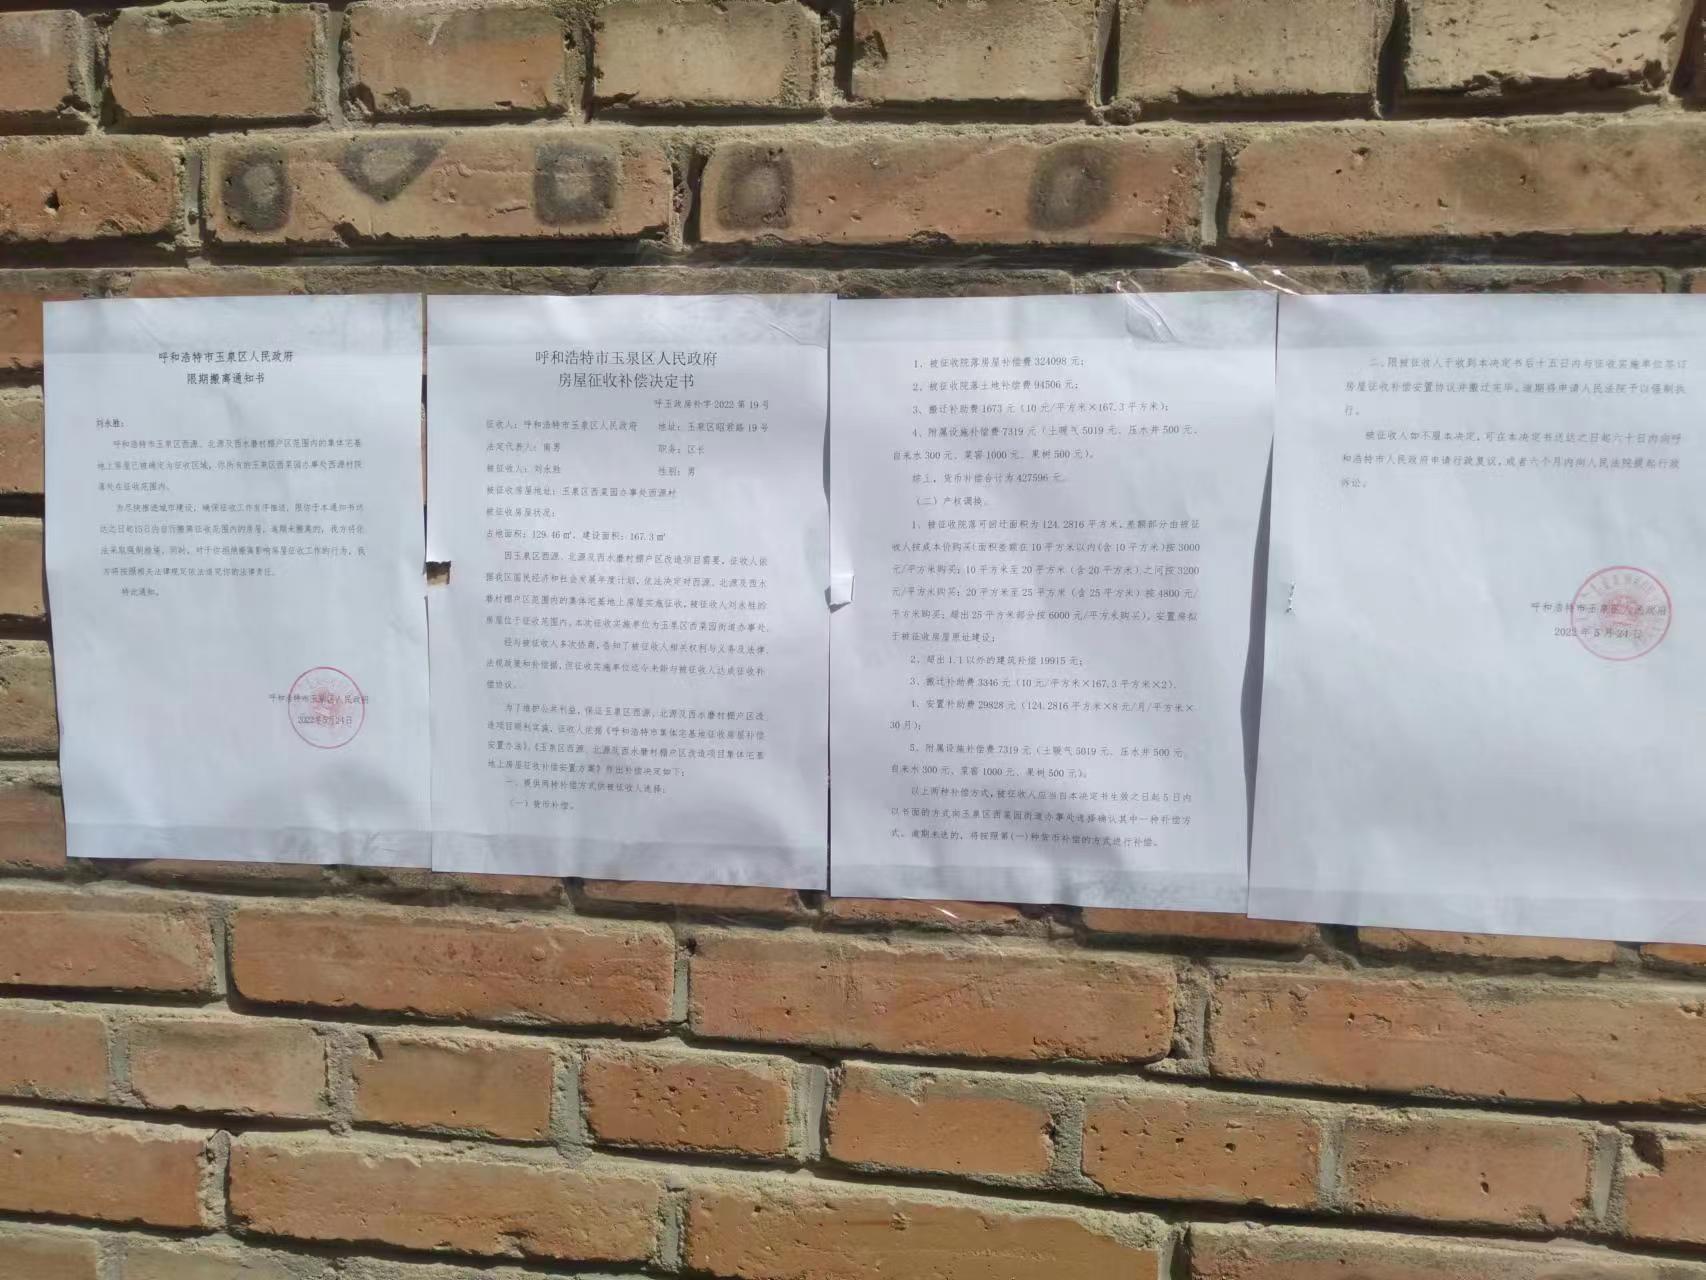 呼和浩特市玉泉区人民政府
限期搬离通知书
刘永胜：
呼和浩特市玉泉区西源、北源及西水磨村棚户区范围内的集体宅基
地上房屋已被确定为征收区域，你所有的玉泉区西菜园办事处西源村院
落处在征收范围内。
为尽快推进城市建设，确保征收工作有序推进，限你于本通知书送
达之日起15日内自行搬离征收范围内的房屋，逾期未搬离的，我方将依
法采取强制措施。同时，对于你拒绝搬离影响房屋征收工作的行为，我
方将按照相关法律规定依法追究你的法律责任。
特此通知。
呼和浩特市玉泉区人民政府
2022年5月24日
呼和浩特市玉泉区人民政府
房屋征收补偿决定书
呼玉政房补字 2022 第 19 号
征收人：呼和浩特市玉泉区人民政府 地址：玉泉区昭君路 19 号
法定代表人：南男 职务：区长
被征收人：刘永胜 性别：男
被征收房屋地址：玉泉区西菜园办事处西源村
被征收房屋状况：
占地面积：129.46㎡，建设面积：167.3㎡
因玉泉区西源、北源及西水磨村棚户区改造项目需要，征收人依
据我区国民经济和社会发展年度计划，依法决定对西源、北源及西水
磨村棚户区范围内的集体宅基地上房屋实施征收，被征收人刘永胜的
房屋位于征收范围内，本次征收实施单位为玉泉区西菜园街道办事处。
经与被征收人多次协商，告知了被征收人相关权利与义务及法律、
法规政策和补偿据，但征收实施单位迄今未能与被征收人达成征收补
偿协议。
为了维护公共利益，保证玉泉区西源、北源及西水磨村棚户区改
造项目顺利实施，征收人依据《呼和浩特市集体宅基地征收房屋补偿
安置办法》、《玉泉区西源、北源及西水磨村棚户区改造项目集体宅基
地上房屋征收补偿安置方案》作出补偿决定如下：
一、提供两种补偿方式供被征收人选择：
（一）货币补偿。
1、被征收院落房屋补偿费 324098 元；
2、被征收院落土地补偿费 94506 元；
3、搬迁补助费 1673 元（10 元/平方米×167.3 平方米）；
4、附属设施补偿费 7319 元（土暖气 5019 元、压水井 500 元、
自来水 300 元、菜窖 1000 元、果树 500 元）。
综上，货币补偿合计为 427596 元。
（二）产权调换。
1、被征收院落可回迁面积为 124.2816 平方米，差额部分由被征
收人按成本价购买（面积差额在 10 平方米以内（含 10 平方米）按 3000
元/平方米购买；10 平方米至 20 平方米（含 20 平方米）之间按 3200
元/平方米购买；20 平方米至 25 平方米（含 25 平方米）按 4800 元/
平方米购买；超出 25 平方米部分按 6000 元/平方米购买），安置房拟
于被征收房屋原址建设；
2、超出 1.1 以外的建筑补偿 19915 元；
3、搬迁补助费 3346 元（10 元/平方米×167.3 平方米×2）．
4、安置补助费 29828 元（124.2816 平方米×8 元/月/平方米×
30 月）；
5、附属设施补偿费 7319 元（土暖气 5019 元、压水井 500 元、
自来水 300 元、菜窖 1000 元、果树 500 元）。
以上两种补偿方式，被征收人应当自本决定书生效之日起 5 日内
以书面的方式向玉泉区西菜园街道办事处选择确认其中一种补偿方
式。逾期未选的，将按照第（一）种货币补偿的方式进行补偿。
二、限被征收人于收到本决定书后十五日内与征收实施单位签订
房屋征收补偿安置协议并搬迁完毕。逾期将申请人民法院予以强制执
行。
被征收人如不服本决定，可在本决定书送达之日起六十日内向呼
和浩特市人民政府申请行政复议，或者六个月内向人民法院提起行政
诉讼。
呼和浩特市玉泉区人民政府
2022 年 5 月 24 日